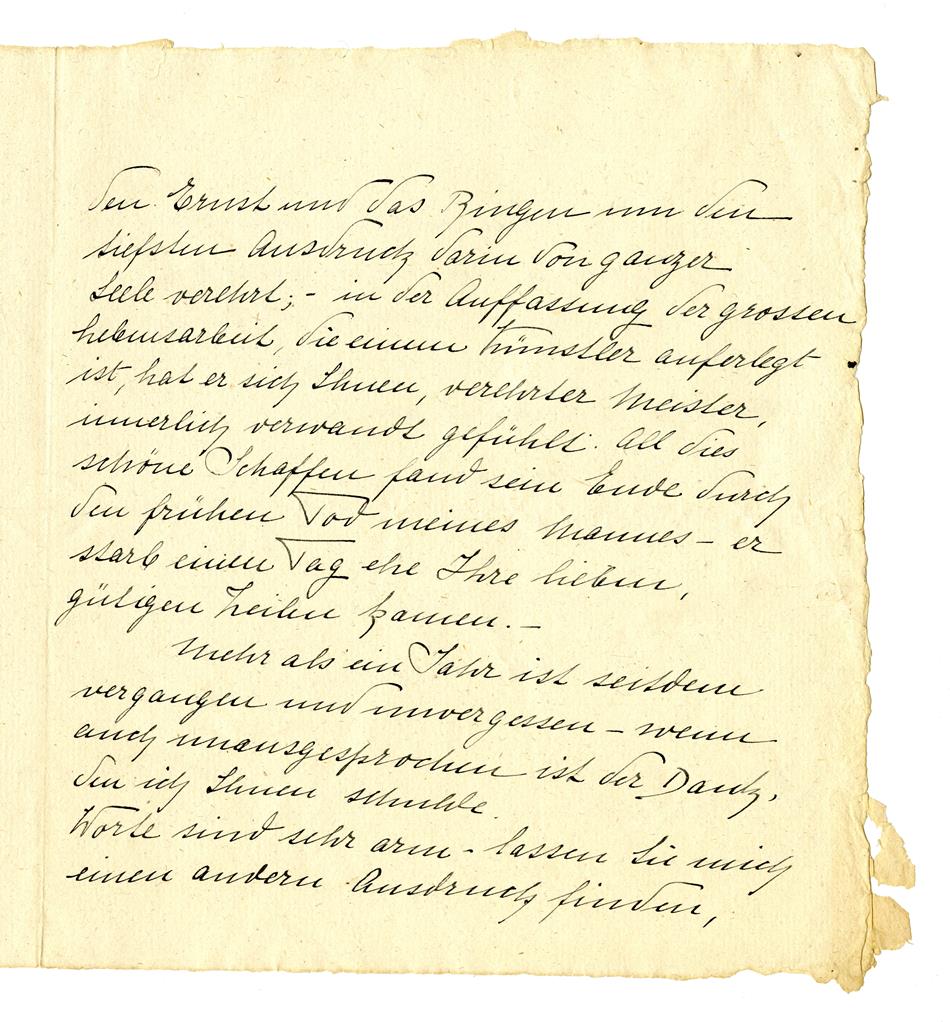 den Ernst und das Ringen um den
tiefsten Ausdruck darin von ganzer
Seele verehrt; - in der Auffassung der grossen
Lebensarbeit, die einem Künstler auferlegt
ist, hat er sich Ihnen, verehrter Meister,
innerlich verwandt gefühlt. All dies
schöne Schaffen fand sein Ende durch
den frühen Tod meines Mannes - er
starb einen Tag ehe Ihre lieben,
gütigen Zeilen kamen. -
Mehr als ein Jahr ist seitdem
vergangen und unvergessen - wenn
auch unausgesprochen ist der Dank,
den ich Ihnen schulde.
Worte sind sehr arm - lassen Sie mich
einen andern Ausdruck finden,